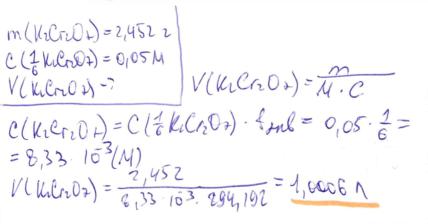 m(K₂Cr₂O₇)=2,452 г
C(1/6 K₂Cr₂O₇)=0,05M
V(K₂Cr₂O₇)-?
V(K₂Cr₂O₇)= m / M·C
C(K₂Cr₂O₇)=C(1/6 K₂Cr₂O₇)·fэкв = 0,05·1/6 =
= 8,33·10⁻³(M)
V(K₂Cr₂O₇)= 2,452 / 8,33·10⁻³·294,192 = 1,0006 л